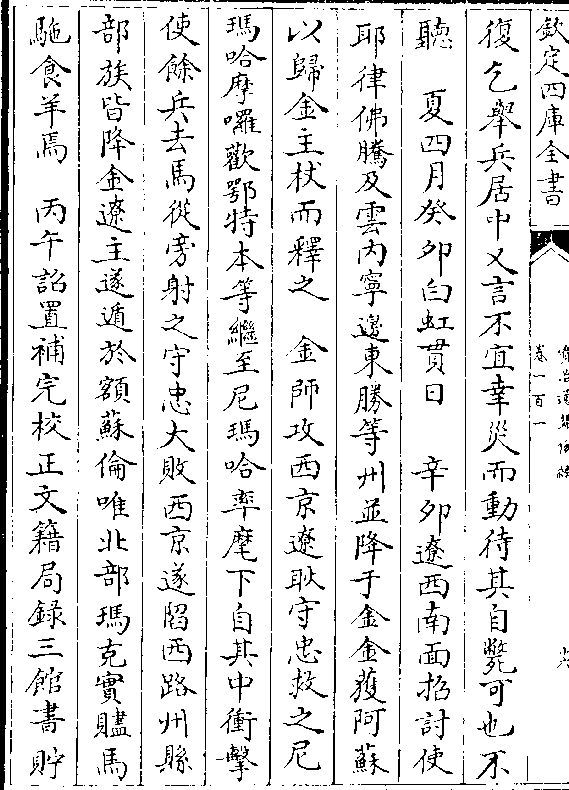 欽定四庫全書
卷一百一
復乞舉兵居中又言不宜幸災而動待其自斃可也不
聽　夏四月癸卯白虹貫日　辛卯遼西南面招討使
耶律佛騰及雲内寧邊東勝等州並降于金金獲阿蘇
以歸金主杖而釋之　金師攻西京遼耿守忠救之尼
瑪哈摩囉歡鄂特本等繼至尼瑪哈率麾下自其中衝擊
使餘兵去馬從旁射之守忠大敗西京遂陷西路州縣
部族皆降金遼主遂遁於額蘇倫唯北部瑪克實贐馬
駞食羊焉　丙午詔置補完校正文籍局錄三館書貯